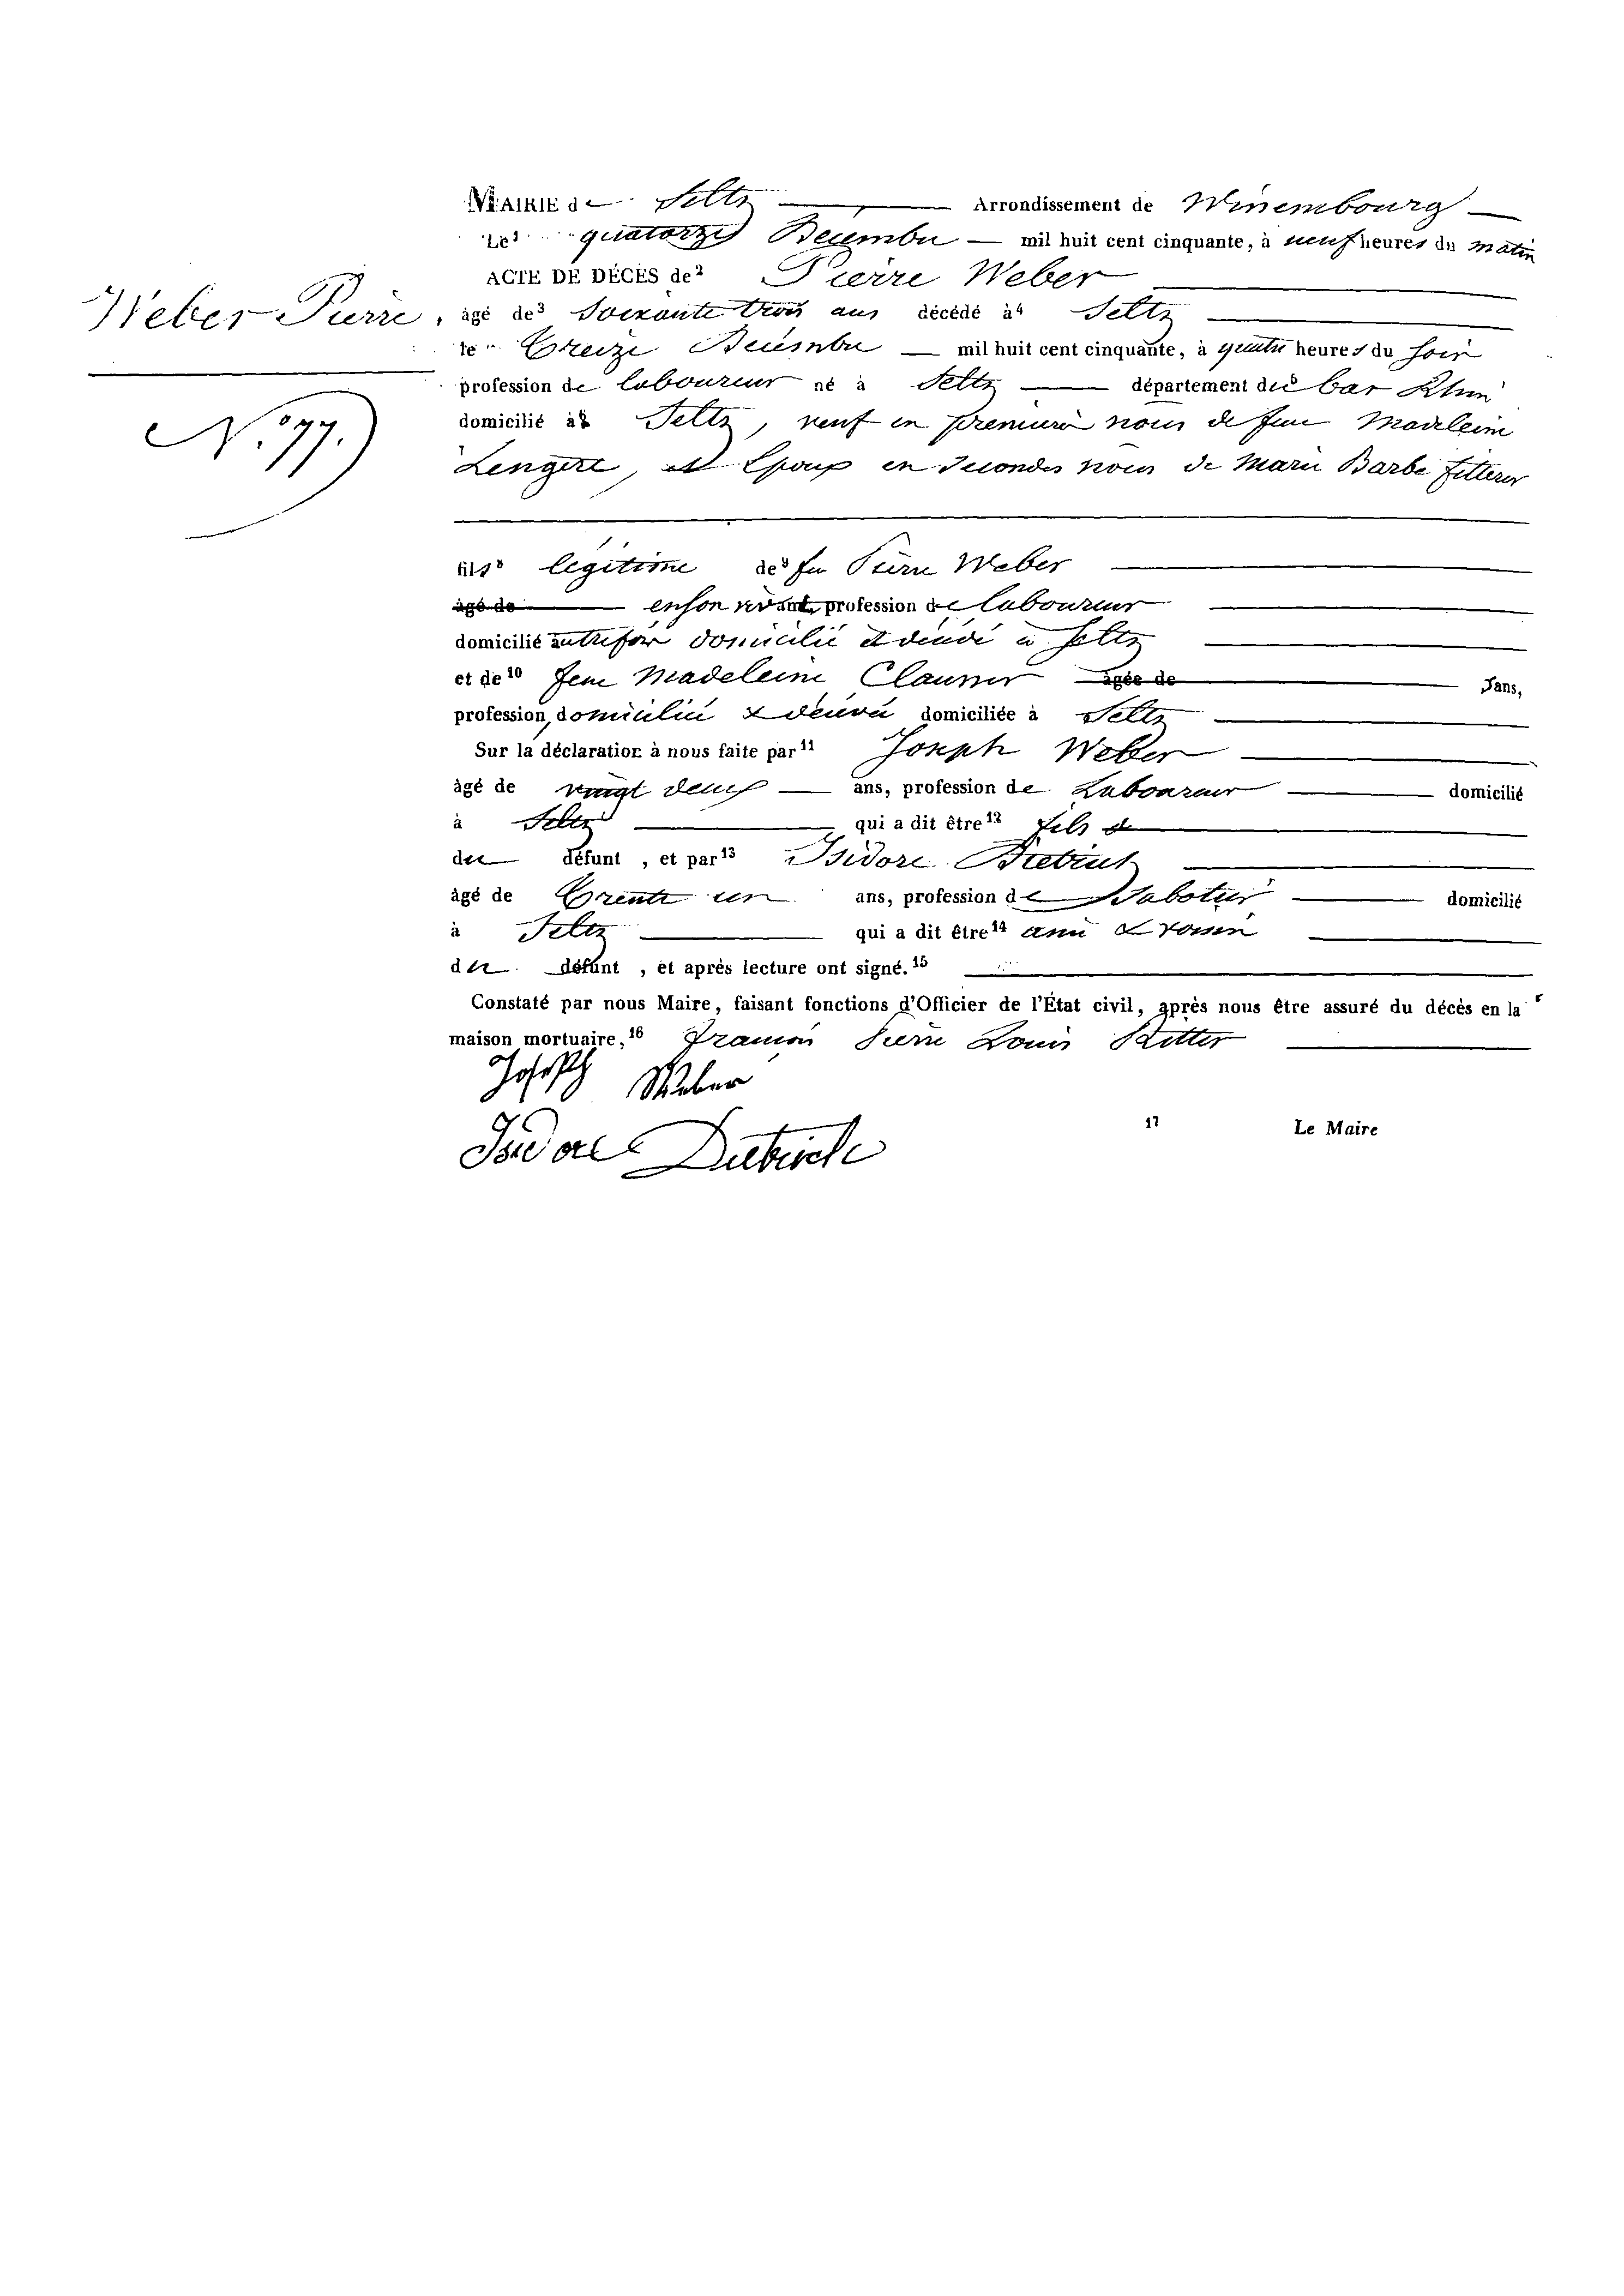 MAIRIE de Seltz Arrondissement de Wissembourg
Le¹ quatorze Décembre — mil huit cent cinquante, à neuf heures du matin
ACTE DE DÉCÈS de² Pierre Weber
Weber Pierre, âgé de³ Soixante trois ans décédé à⁴ Seltz
le Treize Décembre — mil huit cent cinquante, à quatre heures du soir
profession de laboureur né à Seltz département du bas Rhin
N.° 77.
domicilié à Seltz, veuf en premières noces de feue Madeleine
et Epoux en Secondes noces de Marie Barbe Fitterer
fils légitime de⁹ feu Pierre Weber
âgé de en son vivant, profession de laboureur
domicilié autrefois domicilié et décédé à Seltz
et de¹⁰ feue Madeleine âgée de ans,
profession, domiciliée & décédée domiciliée à Seltz
Sur la déclaration à nous faite par¹¹ Joseph Weber
âgé de vingt deux — ans, profession de Laboureur domicilié
à Seltz qui a dit être¹² fils
du défunt, et par¹³ Isidore Dietrich
âgé de Trente un ans, profession de Sabotier domicilié
à Seltz qui a dit être¹⁴ ami & voisin
du défunt, et après lecture ont signé.¹⁵
Constaté par nous Maire, faisant fonctions d'Officier de l'État civil, après nous être assuré du décès en la
maison mortuaire,¹⁶ François Pierre Louis Ritter
Joseph Weber
17 Le Maire
Isidore Dietrich